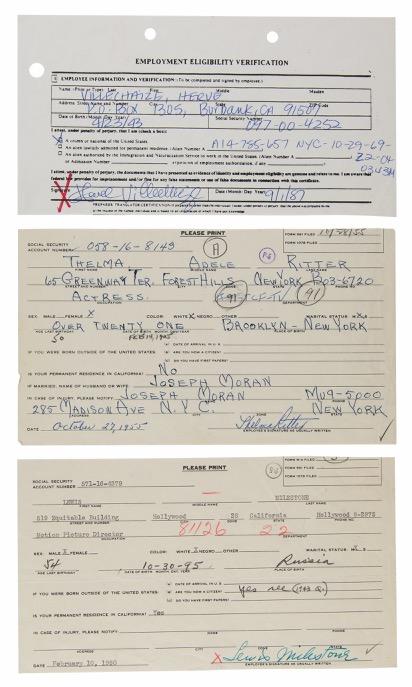 EMPLOYMENT ELIGIBILITY VERIFICATION
EMPLOYEE INFORMATION AND VERIFICATION: (To be completed and signed by employee.)
Name: (Print or Type) Last First Middle Maiden
VILLECHAIZE, HERVE
Address: Street Name and Number City State ZIP Code
P.O. BOX 1305, Burbank, CA 91507
Date of Birth (Month/Day/Year) Social Security Number
4/23/43 097-00-4252
I attest, under penalty of perjury, that I am (check a box):
A citizen or national of the United States.
A14-785-657 NYC-10-29-69-
An alien lawfully admitted for permanent residence (Alien Number A
An alien authorized by the Immigration and Naturalization Service to work in the United States (Alien Number A
22-04
expiration of employment authorization, if any
I attest, under penalty of perjury, the documents that I have presented as evidence of identity and employment eligibility are genuine and relate to me. I am aware that
federal law provides for imprisonment and/or fine for any false statements or use of false documents in connection with this certificate.
X Herve Villechaize Date (Month/Day/Year) 9/1/87
PLEASE PRINT
10/28/55
SOCIAL SECURITY
ACCOUNT NUMBER 058-16-8143 A
THELMA ADELE RITTER
FIRST NAME MIDDLE NAME
65 GREENWAY TER. FOREST HILLS NEW YORK BO3-6720
STREET AND NUMBER CITY ZONE STATE PHONE NO.
ACTRESS 91 TCF-TV 91
OCCUPATION
SEX: MALE FEMALE X COLOR: WHITE X NEGRO OTHER MARITAL STATUS: M X S
OVER TWENTY ONE BROOKLYN - NEW YORK
50 FEB 14, 1905
AGE LAST BIRTHDAY DATE OF BIRTH MONTH, DAY, YEAR PLACE OF BIRTH
DATE OF ARRIVAL IN U.S.
IF YOU WERE BORN OUTSIDE OF THE UNITED STATES: ARE YOU NOW A CITIZEN?
DO YOU HAVE FIRST PAPERS?
IS YOUR PERMANENT RESIDENCE IN CALIFORNIA? No
IF MARRIED, NAME OF HUSBAND OR WIFE JOSEPH MORAN
IN CASE OF INJURY, PLEASE NOTIFY JOSEPH MORAN MU9-5000
285 MADISON AVE N.Y.C. NEW YORK
DATE October 27, 1955 Thelma Ritter
EMPLOYEE'S SIGNATURE AS USUALLY WRITTEN
PLEASE PRINT
SOCIAL SECURITY
ACCOUNT NUMBER 571-16-6279
LEWIS MILESTONE
MIDDLE NAME
519 Equitable Building Hollywood 28 California Hollywood 9-2875
STREET AND NUMBER CITY ZONE STATE PHONE NO.
Motion Picture Director 81126 22
OCCUPATION
SEX: MALE X FEMALE COLOR: WHITE X NEGRO OTHER MARITAL STATUS: M S
54 10-30-95 Russia
AGE LAST BIRTHDAY DATE OF BIRTH MONTH, DAY, YEAR PLACE OF BIRTH
DATE OF ARRIVAL IN U.S.
IF YOU WERE BORN OUTSIDE OF THE UNITED STATES: ARE YOU NOW A CITIZEN? Yes
DO YOU HAVE FIRST PAPERS?
IS YOUR PERMANENT RESIDENCE IN CALIFORNIA? Yes
IN CASE OF INJURY, PLEASE NOTIFY
NAME PHONE NO.
ADDRESS CITY ZONE STATE
DATE February 10, 1950 X Lewis Milestone
EMPLOYEE'S SIGNATURE AS USUALLY WRITTEN